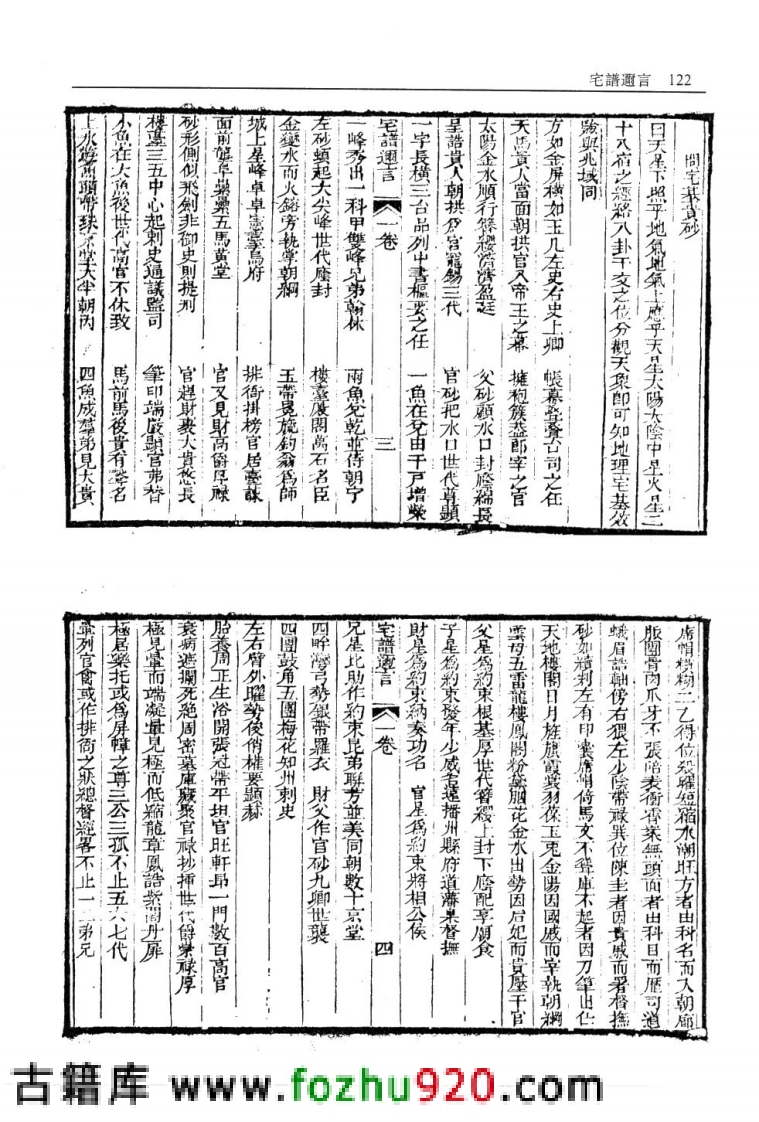 宅譜邇言 122
問宅基貴砂
曰天星下照乎地氣地氣上應乎天星太陽太陰中星火星二
十八宿之經絡八卦干支之位分觀天象即可知地理宅基效
驗與兆域同
方如金屏橫如玉几左史右史上卿 帳幕疊疊台司之任
天馬貴人當面朝拱官入帝王之幕 擁袍簇蓋郎宰之官
太陽金水順行簪纓濟濟盈廷 父砂顧水口封廕綿長
呈誥貴人朝拱父官寵錫三代 官砂把水口世代尊顯
一字長橫三台品列中書樞要之任 一魚在兌由千戶增榮
宅譜邇言 一卷 三
一峰秀出一科甲雙峰兄弟翰林 兩魚兌乾並侍朝宁
左砂頭起大尖峰世代廕封 樓臺廈閣萬石名臣
金變水而火鎔旁執掌朝綱 玉帶晃旒釣翁為師
城上星峰卓卓憲臺烏府 排衙掛榜官居臺諫
面前壟阜纍纍五馬黃堂 官又見財高爵厚祿
砂形側似飛劍非御史則提刑 官趕財妻大貴悠長
樓臺三五中心起刺史通議監司 筆印端嚴顯官弗替
小魚在大魚後世代高官不休致 馬前馬後貴有聲名
上水遊魚頭帶珠玉堂大半朝內 四魚成羣弟見大貴
席帽模糊三乙得位殺曜短縮水潮旺方者由科名而入朝廊
服團骨肉爪牙不張暗表衝霄案無頭面者由科目而歷司道
蛾眉誥軸傍右猥左少陰帶祿異位陳圭者因貴戚而署督撫
砂如績刹左有印囊席帽倚馬文不聳庫不起者因刀筆出仕
天地樓閣日月旌旗霞裳羽葆玉兎金陽因國戚而宰執朝綱
雲母五雷龍樓鳳閣粉黛胭花金水出勢因后妃而貴壓千官
父星為約束根基厚世代簪纓上封下廕配享廟食
子星為約束發年少威名遠播州縣府道藩臬督撫
財星為約束納奏功名 官星為約束將相公侯
宅譜邇言 一卷 四
兄星比助作約束昆弟聯芳並美同朝數十京堂
四畔灣弓勢銀帶羅衣 財父作官砂九卿世襲
四團鼓角五團梅花如州刺史
左右臂外曜勢俊俏權要顯赫
胎養周正生浴開張冠帶平坦官旺軒昂一門數百高官
衰病遮攔死絕周密墓庫廠聚官祿抄揷世代爵榮祿厚
極見暈而端凝暈見極而低縮龍章鳳誥紫閣丹扉
極居藥托或為屏幛之尊三公三孤不止五六七代
暈列官禽或作排衙之狀總督經畧不止一二弟兄
古籍库 www.fozhu920.com